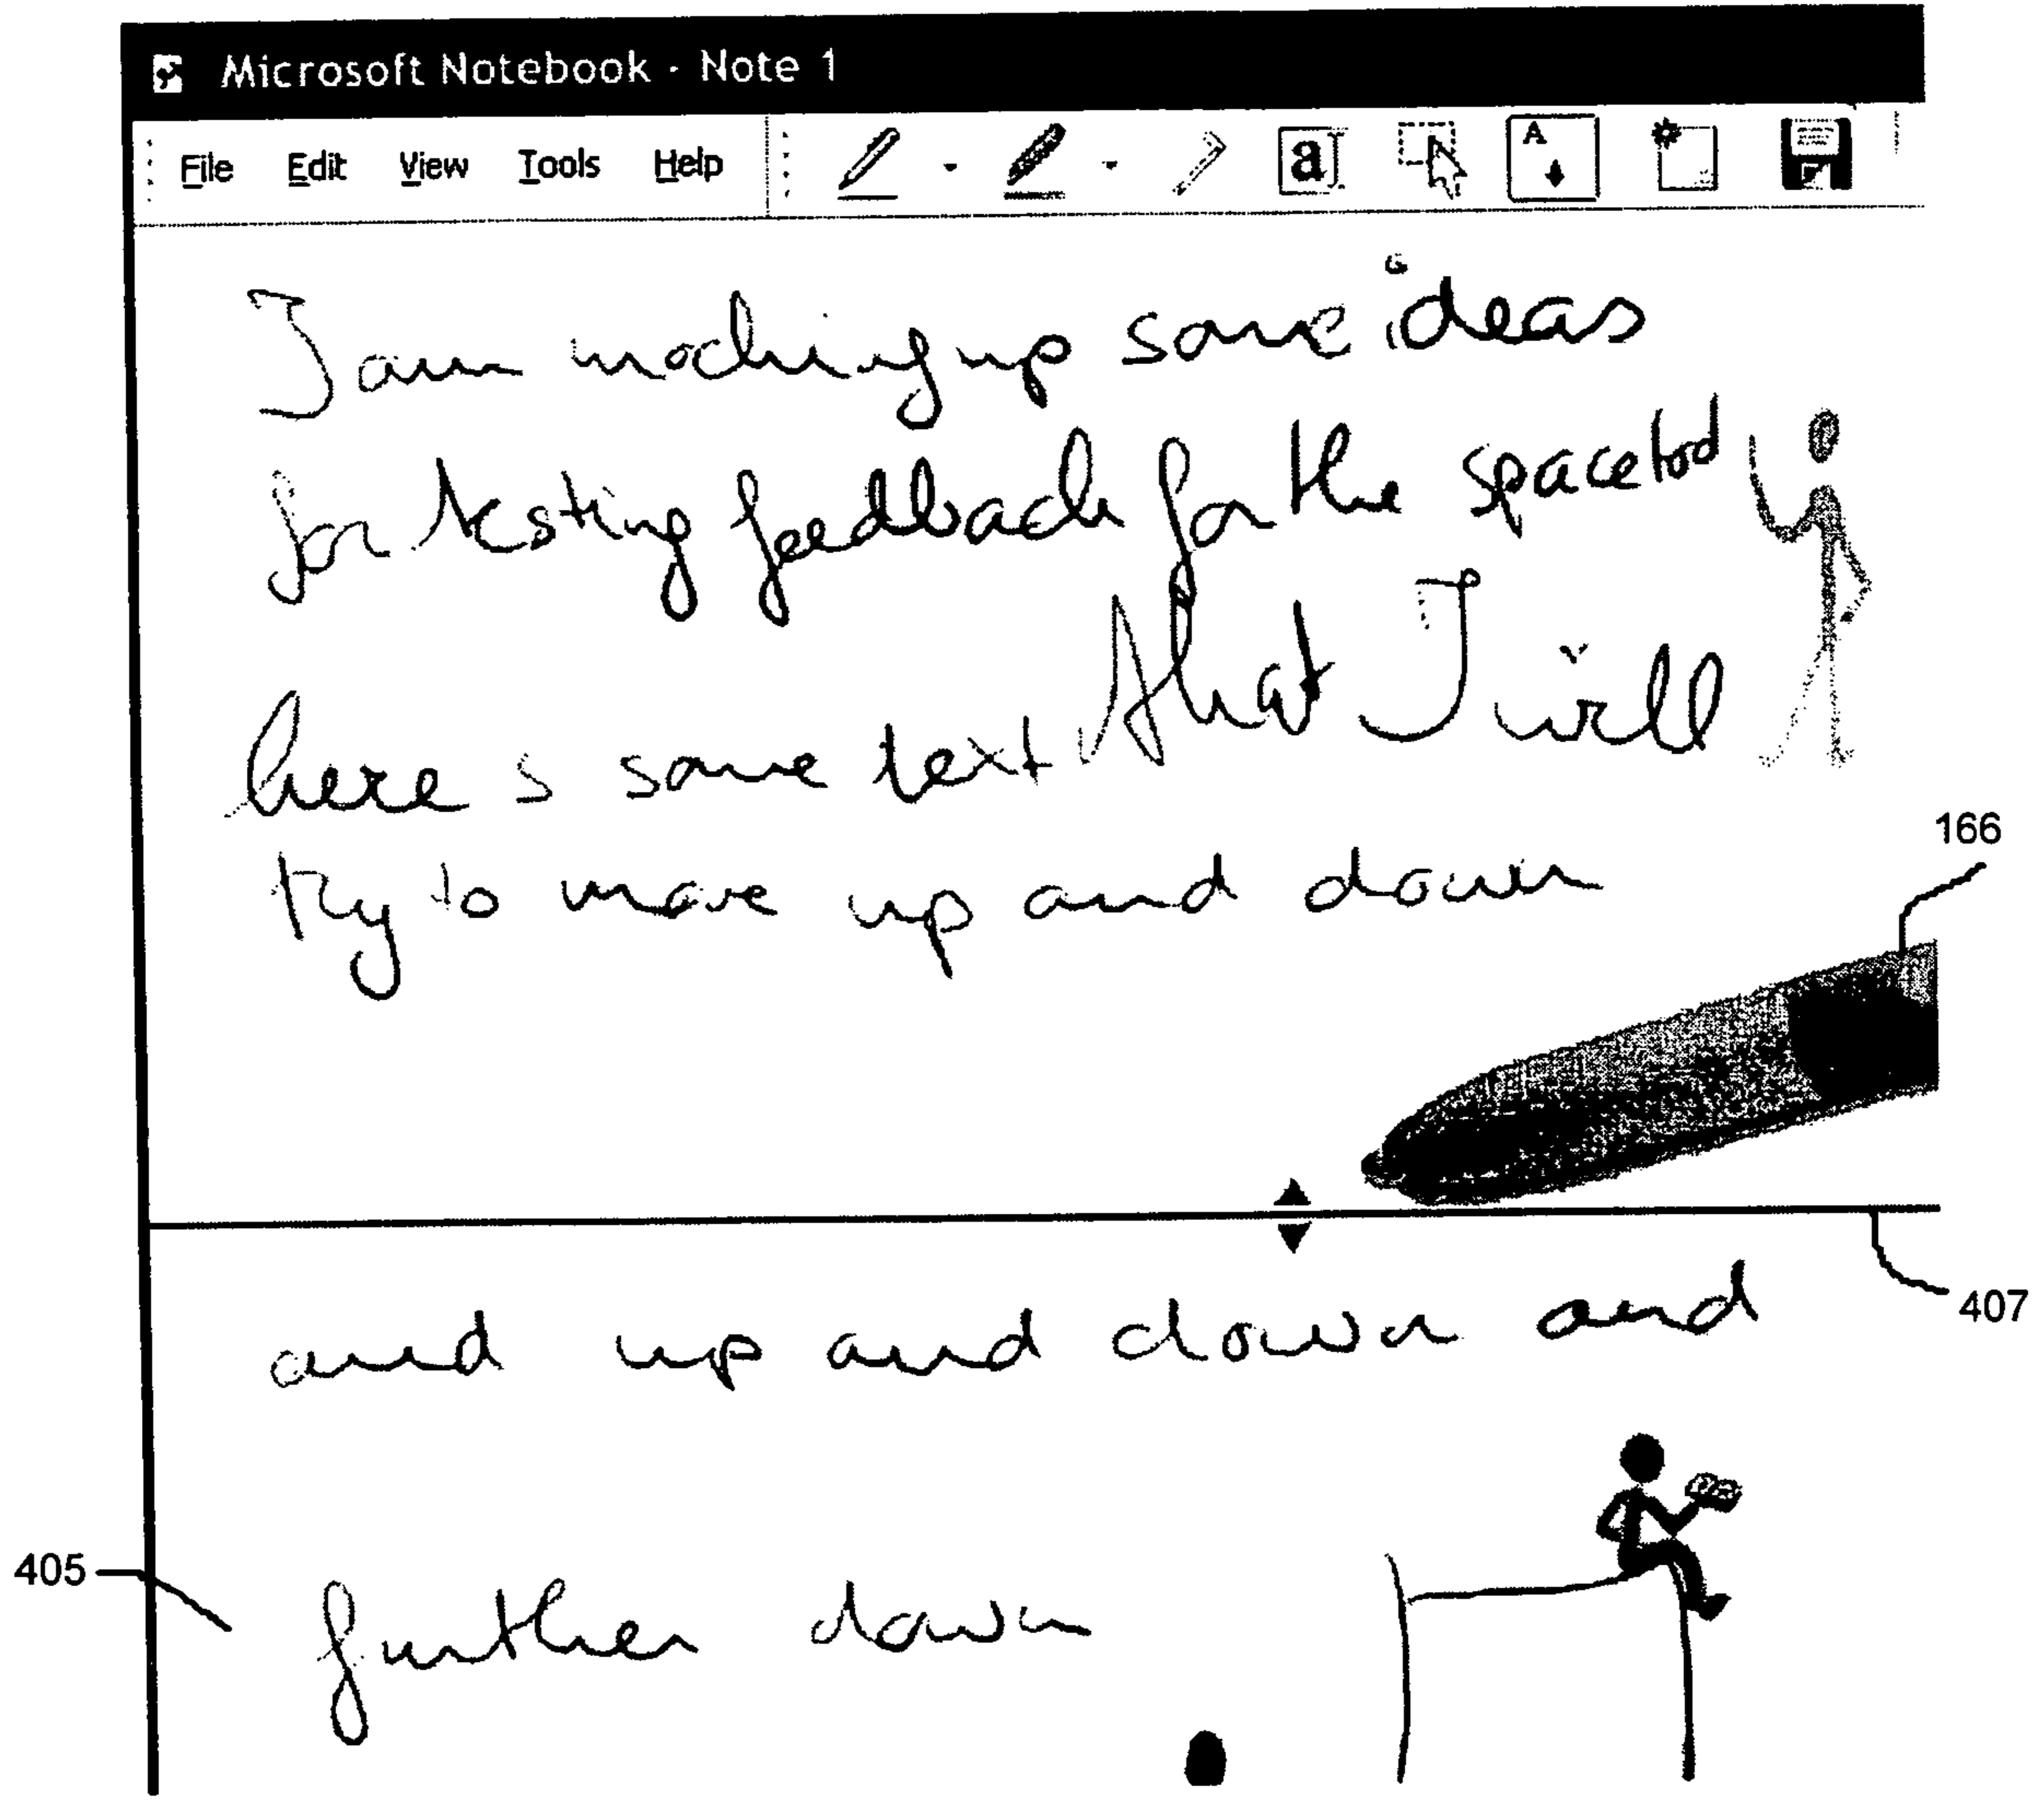 Microsoft Notebook - Note 1
File Edit View Tools Help a A
I am mocking up some ideas
for testing feedback for the spacetool
here s some text that I will
try to move up and down
166
407
and up and down and
405
further down